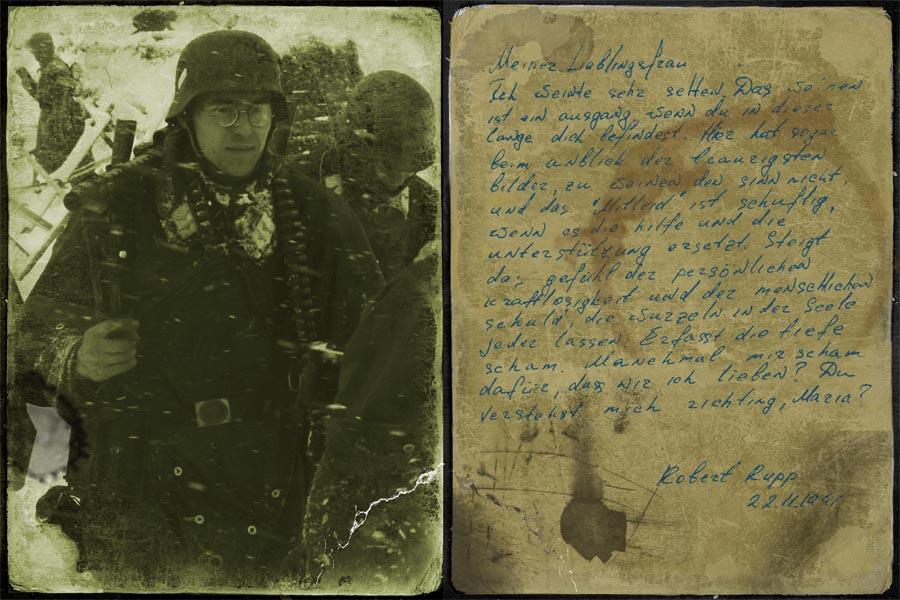 Meiner Lieblingsfrau
Ich weinte sehr selten. Das weinen
ist ein ausgang, wenn du in dieser
lange dich befindest. Hier hat sogar
beim anblick der trauzigsten
bilder, zu weinen den sinn nicht,
und das "Mitleid" ist schuftig,
wenn es die hilfe und die
unterstützung ersetzt. Steigt
das gefühl der persönlichen
kraftlosigkeit und der menschlichen
schuld, die wurzeln in der Seele
jeder lassen. Erfasst die tiefe
scham. Manchmal mir scham
dafür, dass wir ich lieben? Du
verstehst mich richting, Maria?
Robert Rupp
22.11.1941